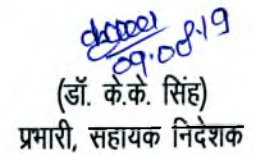 09.08.19
(डॉ. के.के. सिंह)
प्रभारी, सहायक निदेशक